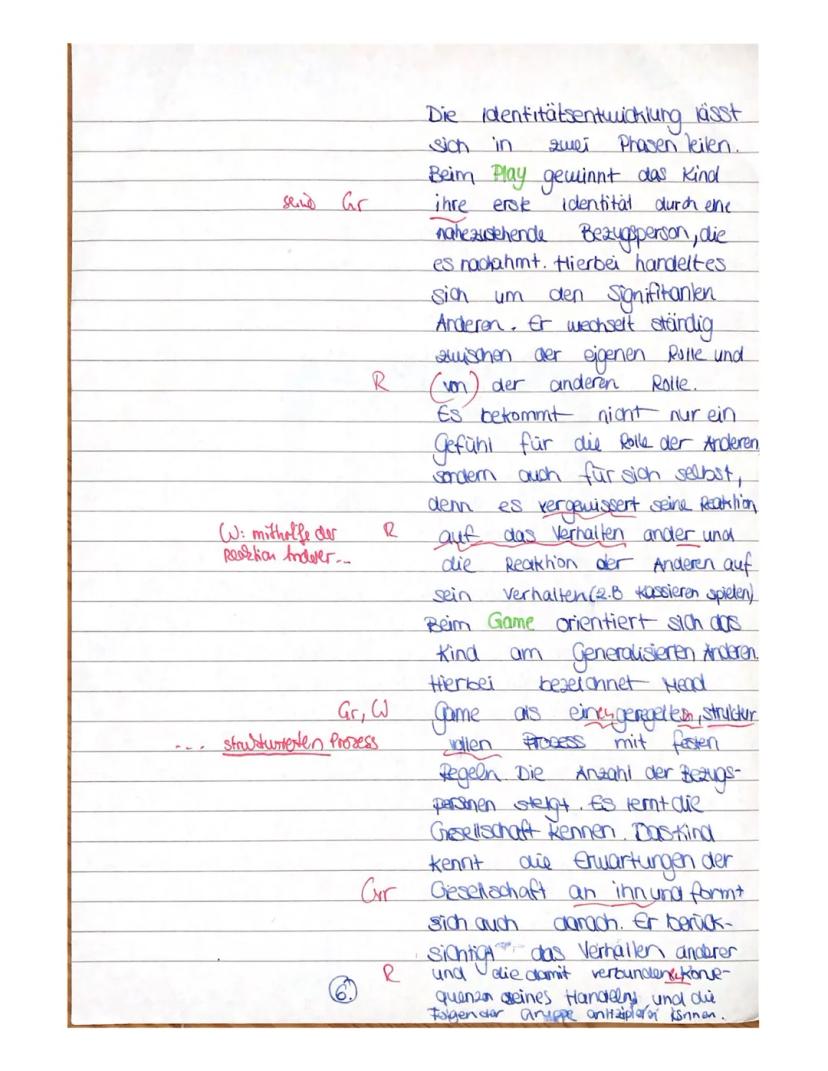 Die Identitätsentwicklung lässt
sich in zwei Phasen teilen.
Beim Play gewinnt das Kind
seine Gr ihre erste identität durch eine
nahezustehende Bezugsperson, die
es nachahmt. Hierbei handelt es
sich um den Signifikanten
Anderen. Er wechselt ständig
zwischen der eigenen Rolle und
R (von) der anderen Rolle.
Es bekommt nicht nur ein
Gefühl für die Rolle der Anderen
sondern auch für sich selbst,
denn es vergewissert seine Reaktion
W: mithilfe der R auf das Verhalten ander und
Reaktion Anderer... die Reaktion der Anderen auf
sein Verhalten (z.B Kassieren spielen)
Beim Game orientiert sich das
Kind am Generalisieren Anderen.
Hierbei bezeichnet Mead
Gr, W Game als einen geregelten, struktur
... strukturierten Prozess vollen Prozess mit festen
Regeln. Die Anzahl der Bezugs-
personen steigt. Es lernt die
Gesellschaft kennen. Das Kind
kennt die Erwartungen der
Gr Gesellschaft an ihn und formt
sich auch danach. Er berück-
sichtigt das Verhalten anderer
R und die damit verbundene Konse-
6. quenzen seines Handelns und die
Folgen der Gruppe antizipieren können.